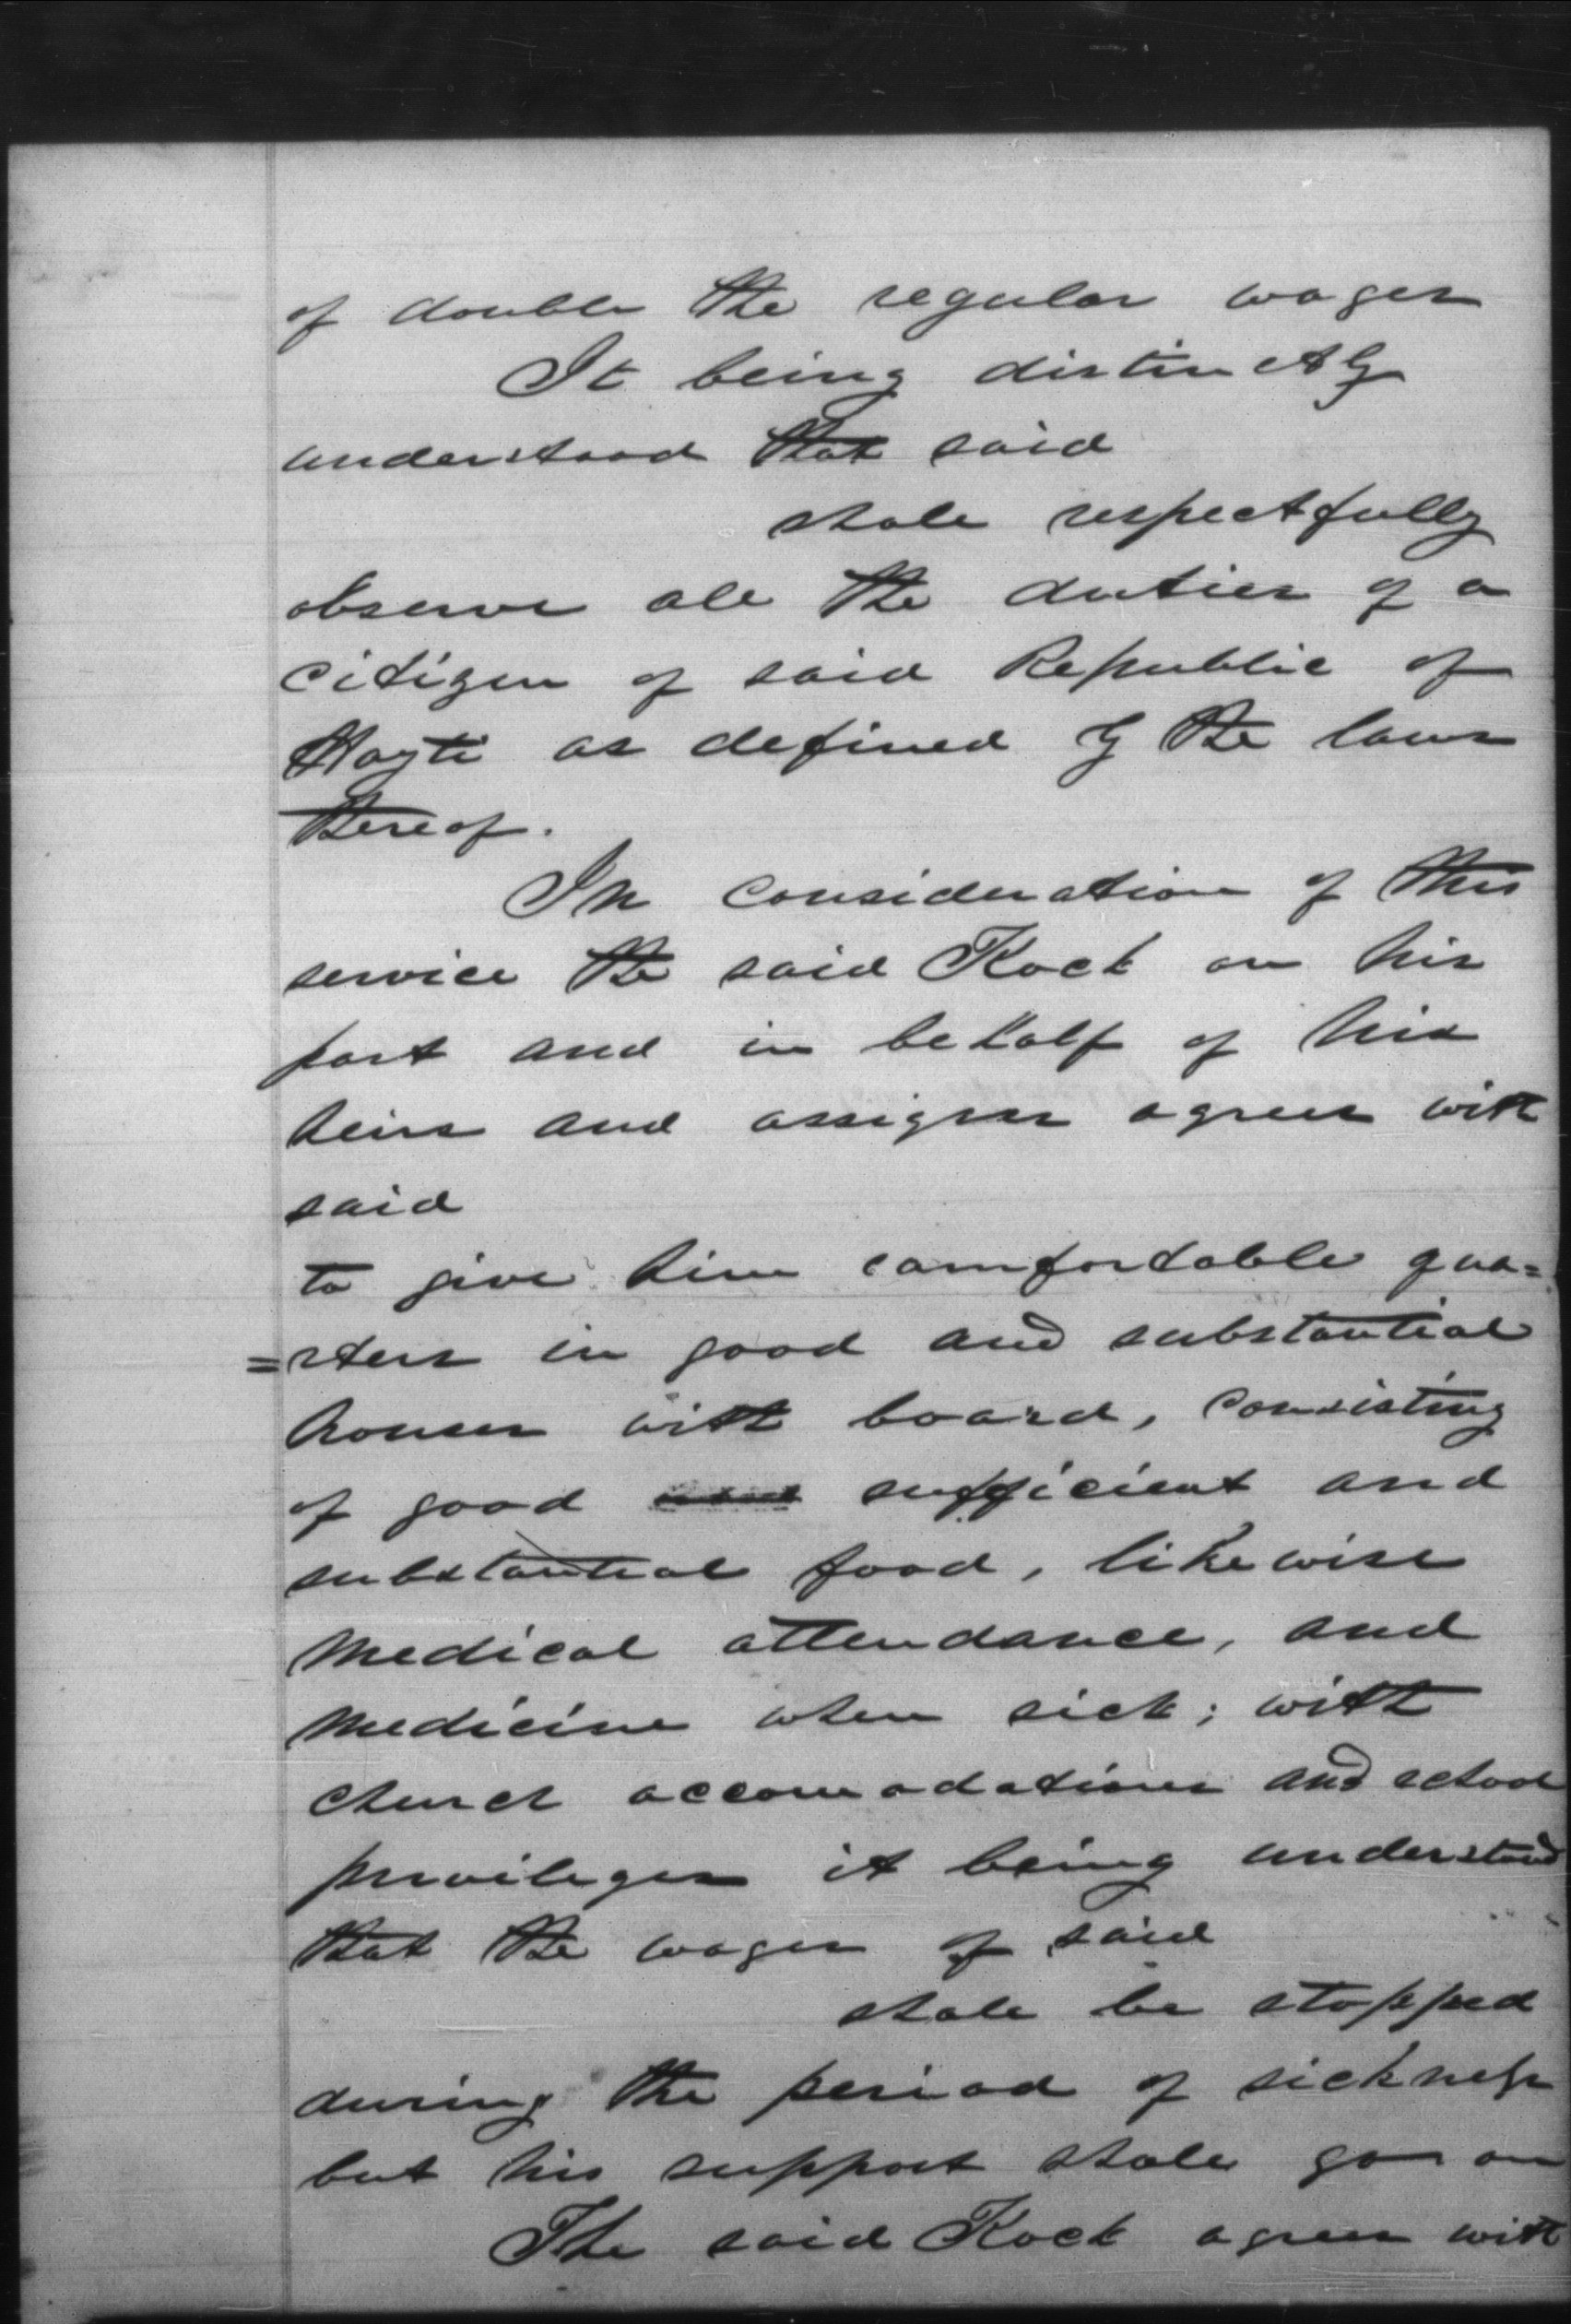 of double the regular wages
It being distinctly
understood that said
shall respectfully
observe all the duties of a
citizen of said Republic of
Hayti as defined by the laws
thereof.
In consideration of this
service the said Kock on his
part and in behalf of his
heirs and assigns agrees with
said
to give him comfortable qua=
=rters in good and substantial
houses with board, consisting
of good and sufficient and
substantial food, likewise
medical attendance, and
medicine when sick; with
church accomodations and school
privileges it being understood
that the wages of said
shall be stopped
during the period of sickness
but his support shall go on
The said Kock agrees with